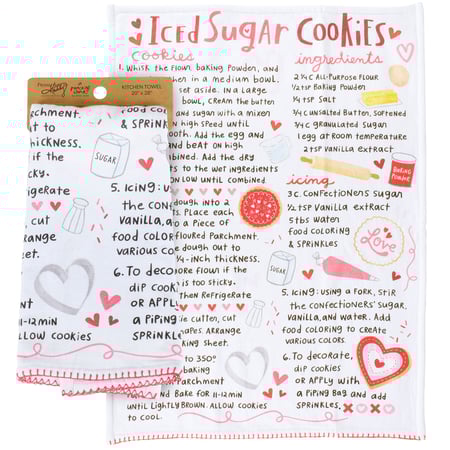 Iced Sugar Cookies
cookies
1. Whisk the flour, baking powder, and
hen in a medium bowl,
et aside. In a large
bowl, cream the butter
and sugar with a mixer
n high speed until
ooth. Add the egg and
and beat on high
mbined. Add the dry
ts to the wet ingredients
on low until combined
dough into 2
ts. Place each
to a piece of
floured parchment.
dough out to
4-inch thickness.
ore flour if the
is too sticky.
then refrigerate
ie cutter, cut
apes. Arrange
king sheet.
to 350°
baking
parchment
and bake for 11-12 min
until lightly brown. Allow cookies
to cool.
ingredients
2 1/4 c all-purpose flour
1/2 tsp baking powder
1/4 tsp salt
3/4 c unsalted butter, softened
3/4 c granulated sugar
1 egg at room temperature
2 tsp vanilla extract
BAKING
POWDER
icing
3 c confectioners sugar
1/2 tsp vanilla extract
5 tbs water
food coloring
& sprinkles
Love
SUGAR
5. Icing: Using a fork, stir
the confectioners' sugar,
vanilla, and water. Add
food coloring to create
various colors.
6. To decorate,
dip cookies
or apply with
a piping bag and add
sprinkles.
KITCHEN TOWEL
20" x 28"
rchment.
ut to
thickness.
if the
icky.
frigerate
, cut
rrange
et.
11-12 min
Allow cookies
food colo
& sprink
SUGAR
5. Icing: U
the confe
vanilla, an
food color
various co
6. To deco
dip cook
or apply
a piping
sprinkle